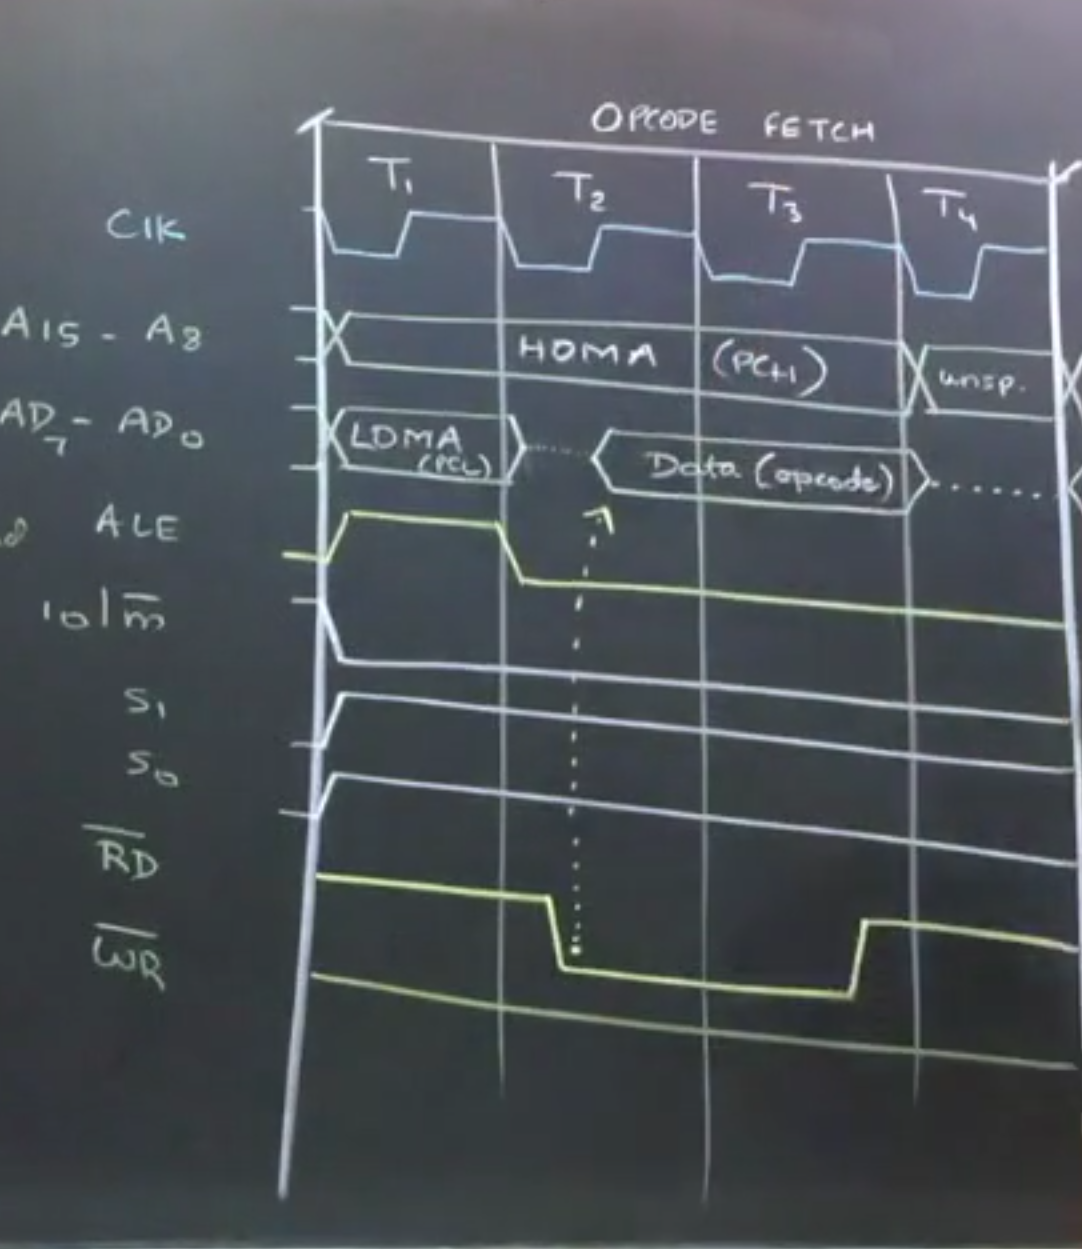 OPCODE FETCH
T1 T2 T3 T4
Clk
A15 - A8 HOMA (PCH) unsp.
AD7 - AD0 LDMA (PCL) Data (opcode)
ALE
IO/m̅
S1
S0
R̅D̅
W̅R̅